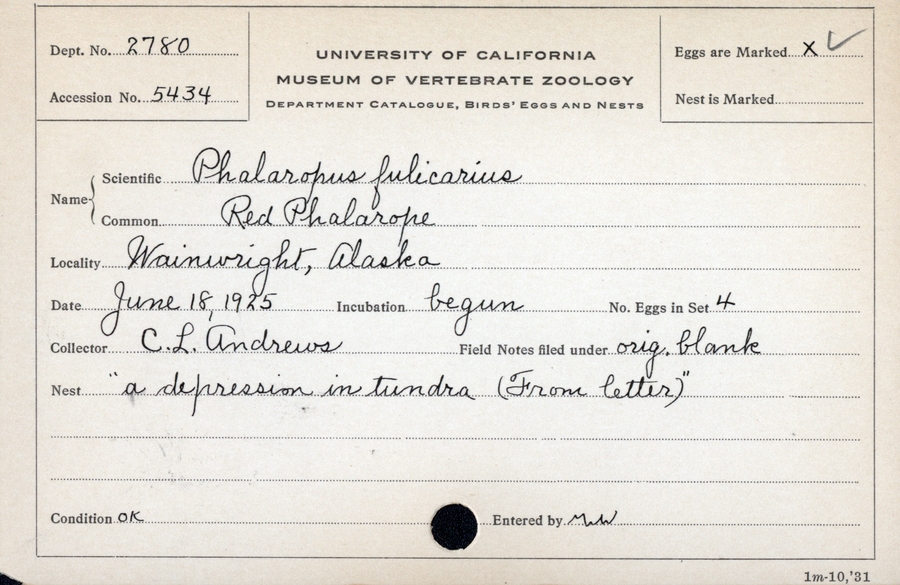 Dept. No. 2780
Accession No. 5434
UNIVERSITY OF CALIFORNIA
MUSEUM OF VERTEBRATE ZOOLOGY
DEPARTMENT CATALOGUE, BIRDS' EGGS AND NESTS
Eggs are Marked X ✓
Nest is Marked
Name { Scientific Phalaropus fulicarius
Common Red Phalarope
Locality Wainwright, Alaska
Date June 18, 1925 Incubation begun No. Eggs in Set 4
Collector C. L. Andrews Field Notes filed under orig. blank
Nest "a depression in tundra (From letter)"
Condition OK Entered by
1m-10,'31